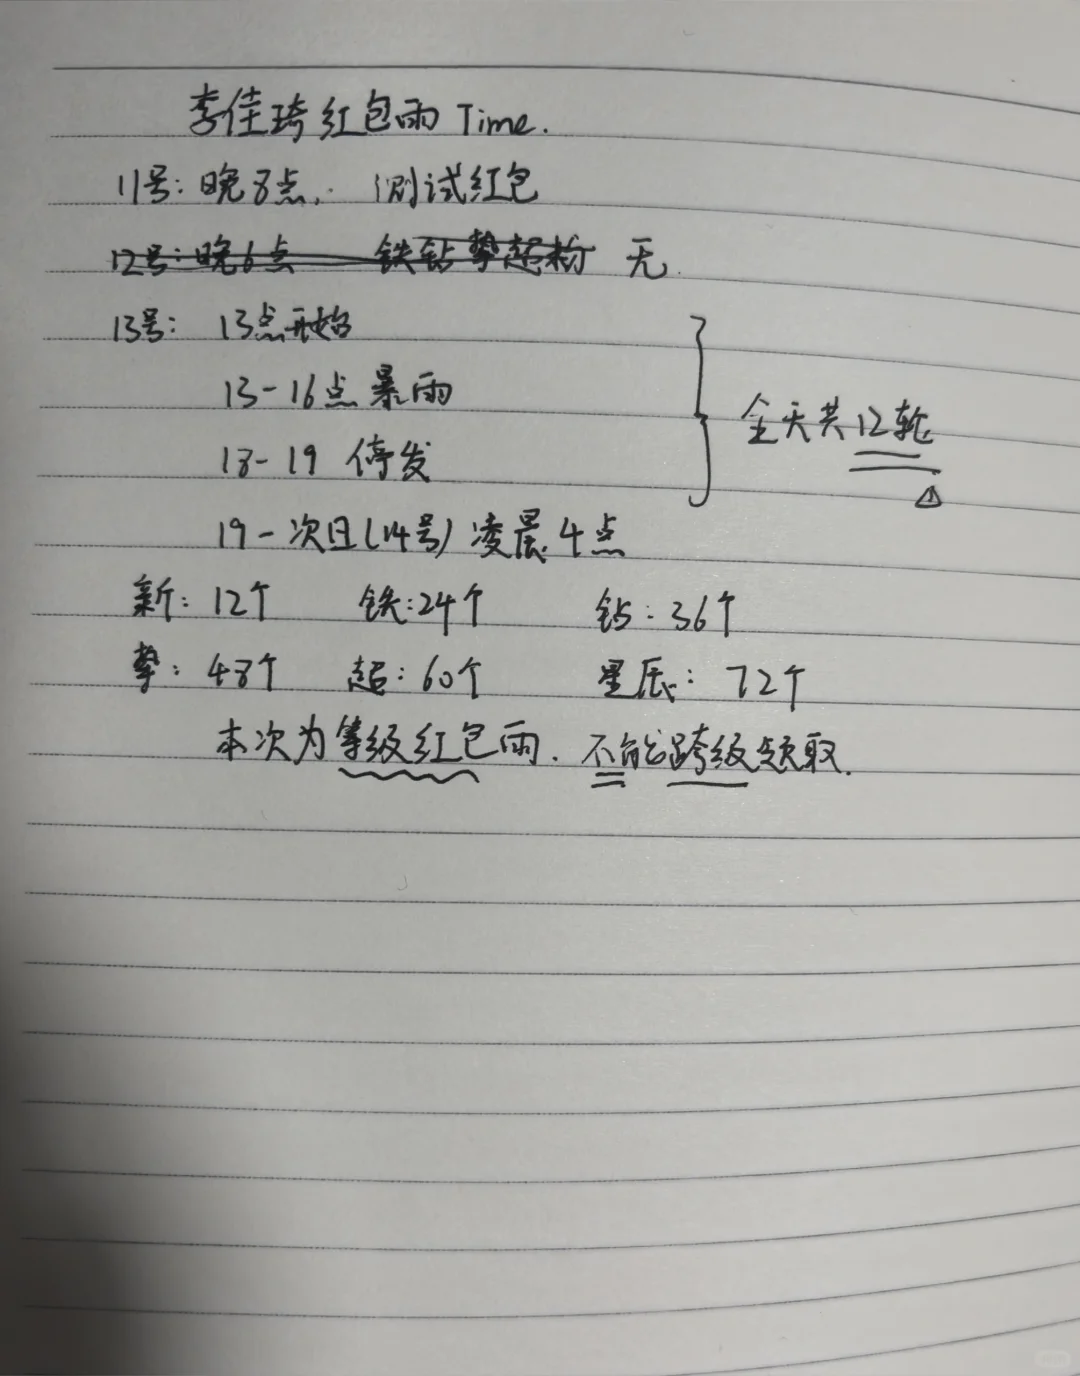 李佳琦红包雨 Time.
11号: 晚8点, 测试红包
12号: 晚6点 铁钻挚超粉 无.
13号: 13点开始
13-16点 暴雨
18-19 停发
全天共12轮
19-次日(14号) 凌晨4点
新: 12个 铁:24个 钻: 36个
挚: 48个 超: 60个 星辰: 72个
本次为等级红包雨. 不能跨级领取.